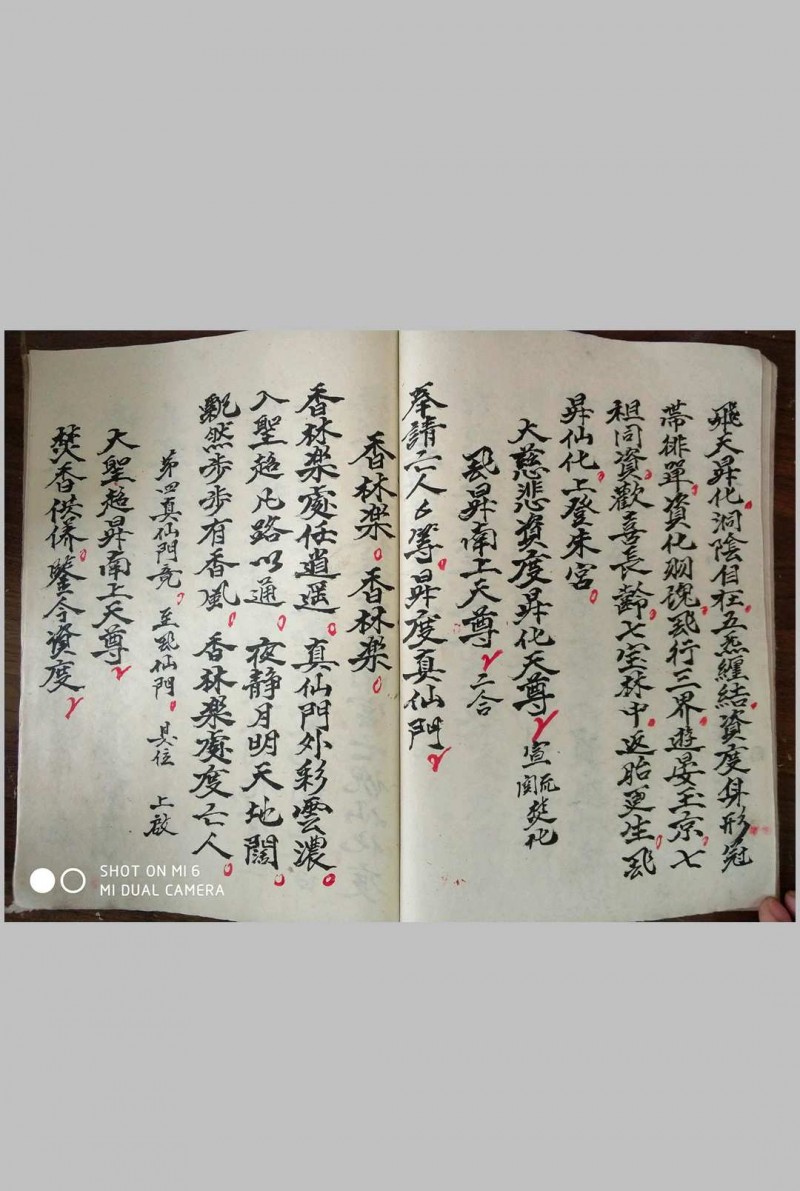 飛天昇化洞陰自在五炁纏結資度身形冠
帶排單資化朋魂飛行三界遊晏玉京七
祖同資歡喜長齡七宝林中返胎更生飛
昇仙化上登朱宮
大慈悲資度昇化天尊 宣疏焚化
飛昇南上天尊 二合
奉請亡人等昇度真仙門
香林楽香林楽
香林楽處任逍遥 真仙門外彩雲濃
入聖超凡路以通 夜靜月明天地闊
飄然步步有香風 香林楽處度亡人
第四真仙門竟 至飛仙門 具位 上啟
大聖超昇南上天尊
焚香供侢鑒今資度
SHOT ON MI 6
MI DUAL CAMERA